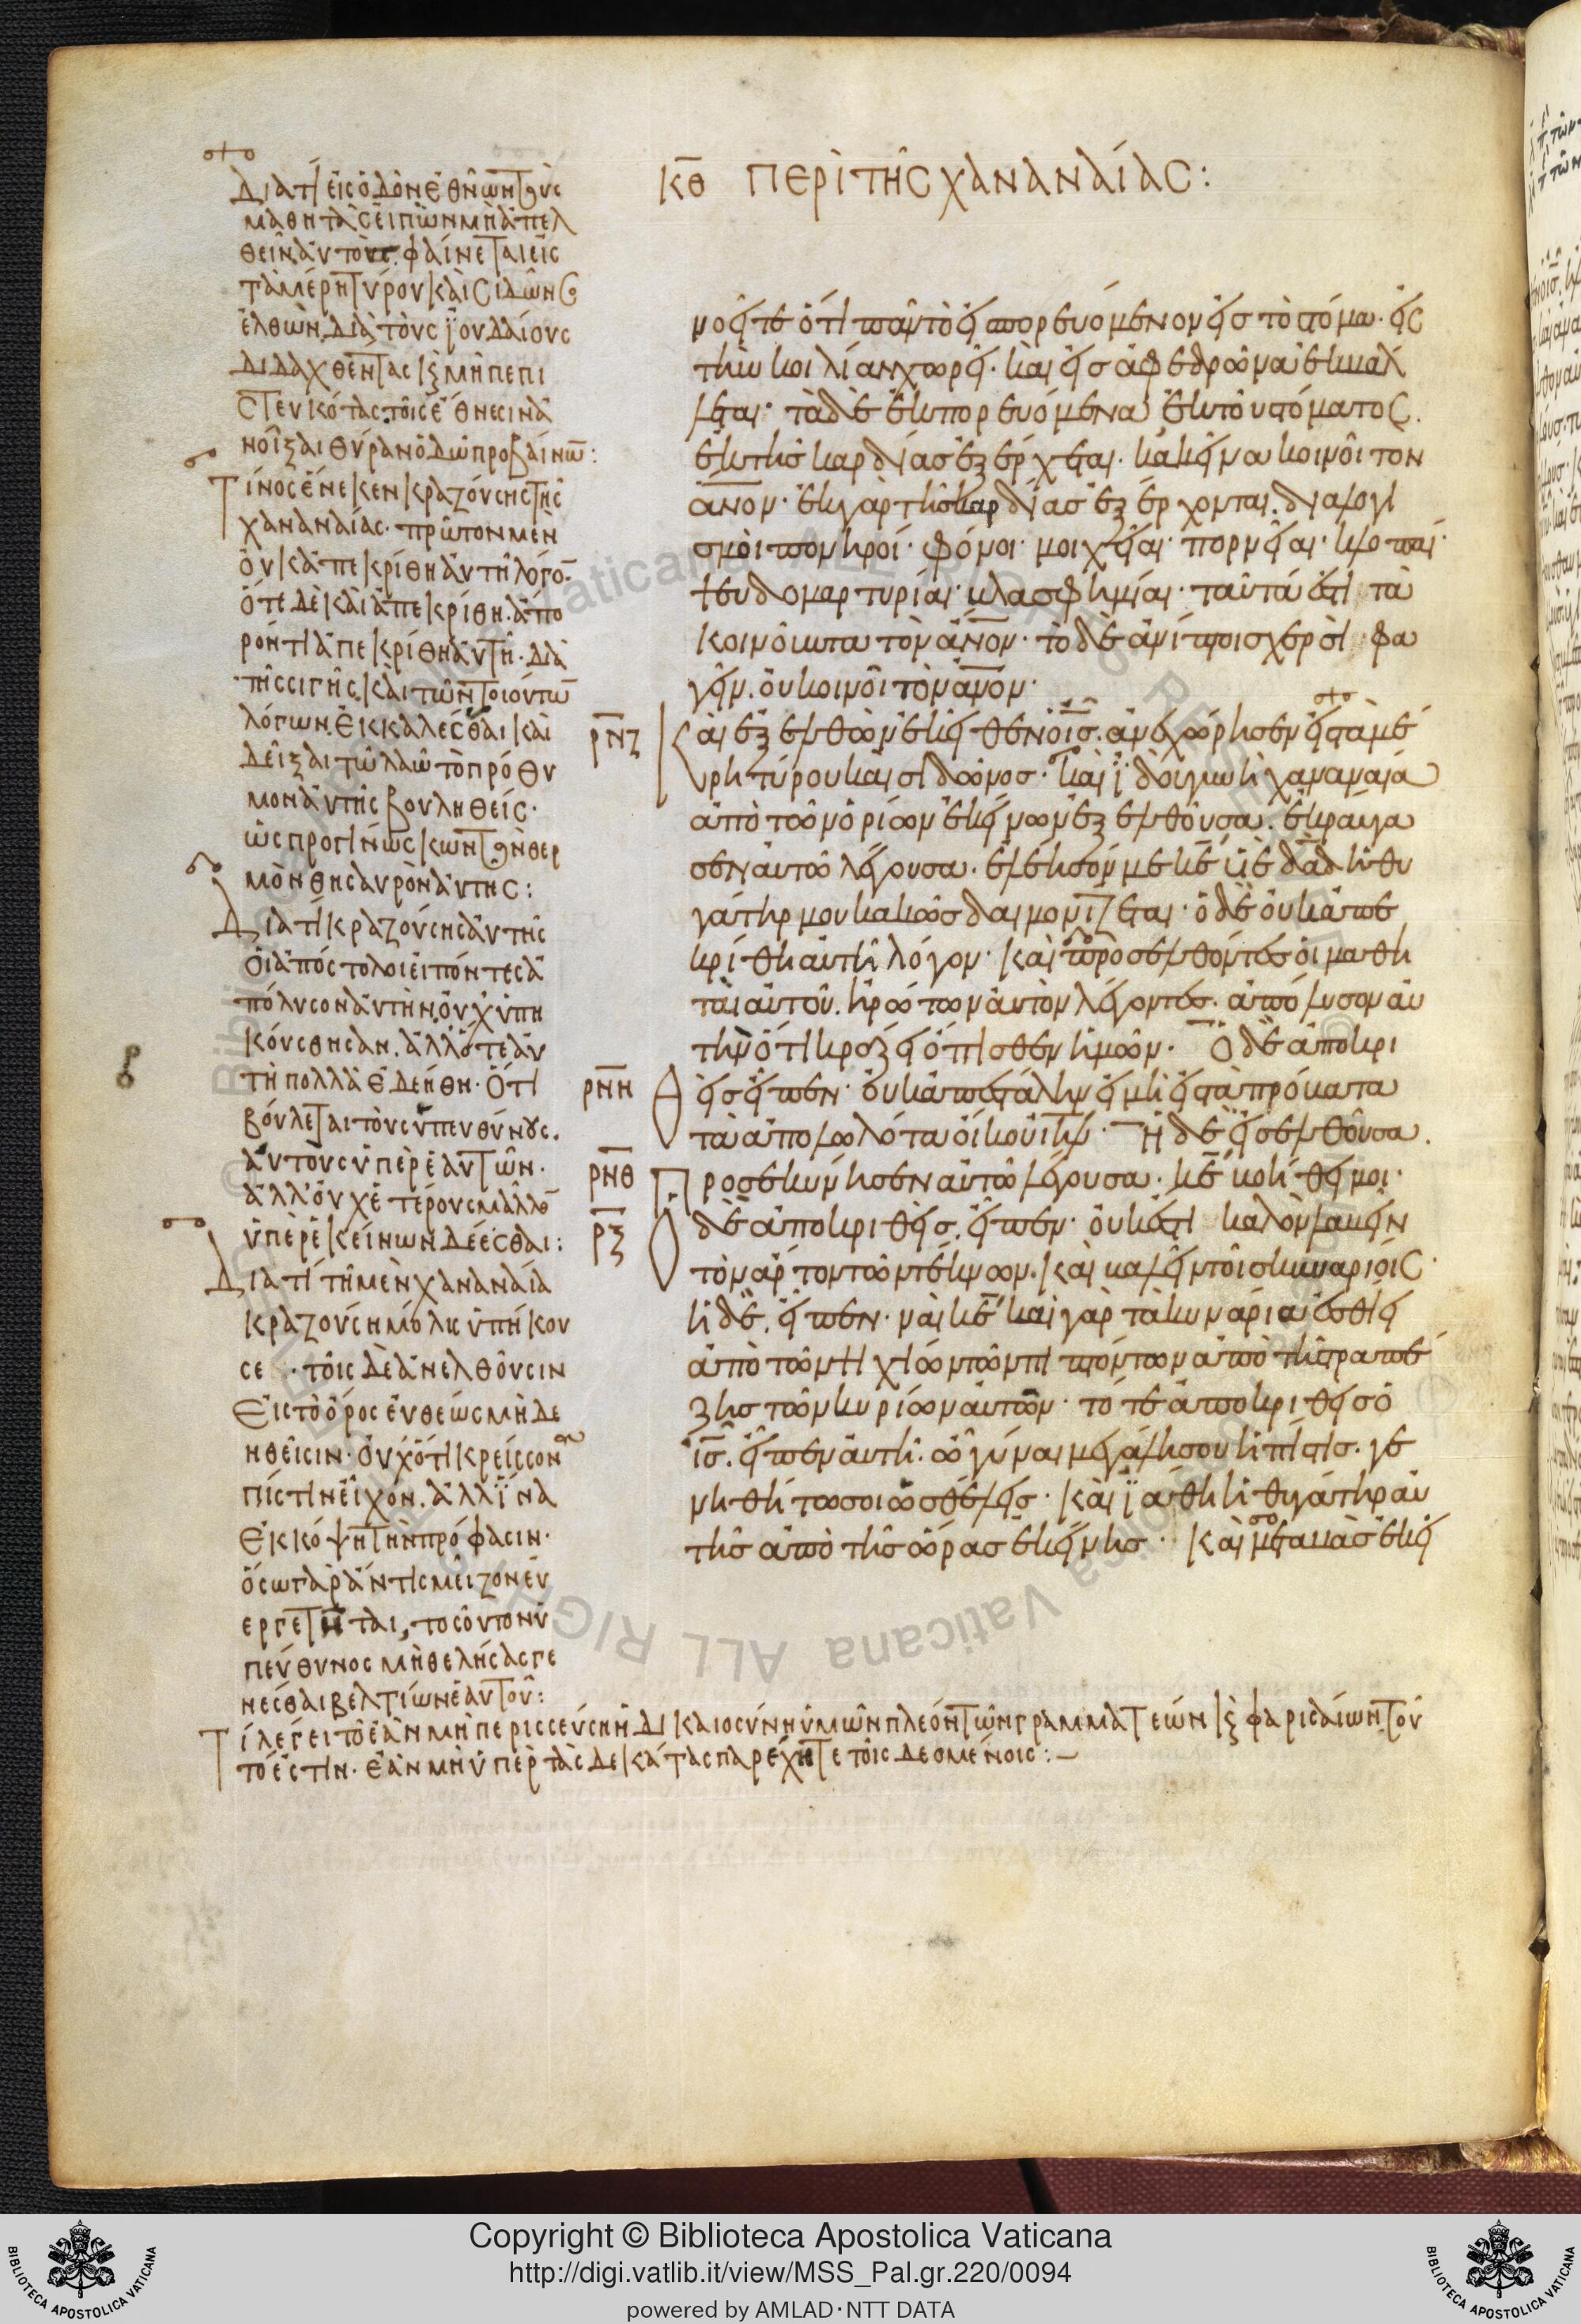 κθ ΠΕΡῚ ΤΗ͂Σ ΧΑΝΑΝΑΊΑΣ:
Διατί εἰς ὁδὸν ἐθνῶν τοὺς
μαθητὰς εἰπὼν μὴ ἀπελ
θεῖν αὐτοὺς. φαίνεται εἰς
τὰ μέρη τύρου καὶ σιδῶνος
ἐλθών. διὰ τοὺς ϊουδαίους
διδαχθέντας κ̀ μὴ πεπι
στευκότας τοῖς ἔθνεσιν ἀ
νοῖξαι θύραν ὁδῶ προβαίνω̄:
Τίνος ἕνεκεν κραζούσης τῆς
χαναναίας. πρῶτον μὲν
οὐκ ἀπεκρίθη αὐτῆ λόγο̄.
ὅτε δὲ καὶ ἀπεκρίθη. ἄπο
ρόν τι ἀπεκρίθη αὐτῆ. διὰ
τῆς σιγῆς. καὶ τῶν τοιούτω̄
λόγων. ἐκκαλέσθαι καὶ
δεῖξαι τῶ λαῶ τὸ πρόθυ
μον αὐτῆς βουληθείς.
ὡς προγινώσκων τὸν θερ
μὸν θησαυρὸν αὐτῆς:
Διατί κραζούσης αὐτῆς
οἱ ἀπόστολοι εἰπόντες ἀ
πόλυσον αὐτὴν. οὐχ ὑπη
κούσθησαν. ἀλλ' ὅτε αὐ
τὴ πολλὰ ἐδεήθη. Ὅτι
βούλεται τοὺς ὑπευθύνους.
αὐτοὺς ὑπὲρ ἑαυτῶν.
ἀλλ' οὐχ ἑτέρους μᾶλλο̄
ὑπὲρ ἐκείνων δέεσθαι:
Διατί τῆ μὲν χαναναία
κραζούση μόλις ὑπήκου
σε. τοῖς δὲ ἀνελθοῦσιν
εἰς τὸ ὄρος εὐθέως μὴ δε
ηθεῖσιν. οὐχ ὅτι κρείσσονα
πίστιν εἶχον. ἀλλ' ἵνα
ἐκκόψη τὴν πρόφασιν.
ὅσω γὰρ ἄν τις μεῖζον εὐ
εργετῆται, τοσοῦτον ὑ
πεύθυνος μὴ θελήσας γε
νέσθαι βελτίων ἑαυτοῦ:
Τί λέγει τὸ ἐὰν μὴ περισσεύση ἡ δικαιοσύνη ὑμῶν πλεόν τῶν γραμματεών κ̀ φαρισαίων. τοῦ
τό ἐστιν. ἐὰν μὴ ὑπὲρ τὰς δεκάτας παρέχητε τοῖς δεομένοις:
νοεῖτε ὅτι πᾶν τὸ εἰσπορευόμενον εἰς τὸ στόμα. εἰς
τὴν κοιλίαν χωρεῖ. καὶ εἰς ἀφεδρῶνα ἐκβάλ
λεται. τὰ δὲ ἐκπορευόμενα ἐκ τοῦ στόματος.
ἐκ τῆς καρδίας ἐξέρχεται. κἀκεῖνα κοινοῖ τὸν
ἄνο̄ν. ἐκ γὰρ τῆς καρδίας ἐξέρχονται. διαλογι
σμοὶ πονηροί. φόνοι. μοιχεῖαι. πορνεῖαι. κλοπαί.
ψευδομαρτυρίαι. βλασφημίαι. ταῦτά ἐστι τὰ
κοινοῦντα τὸν ἄνο̄ν. τὸ δὲ ἀνίπτοις χερσὶ φα
γεῖν. οὐ κοινοῖ τὸν ἄνο̄ν.
ρνζ Καὶ ἐξελθὼν ἐκεῖθεν ὁ ις̄. ἀνεχώρησεν εἰς τὰ μέ
ρη τύρου καὶ σιδῶνος. καὶ ϊδοὺ γυνὴ χαναναία
ἀπὸ τῶν ὁρίων ἐκείνων ἐξελθοῦσα. ἐκραύγα
σεν αὐτῶ λέγουσα. ἐλέησόν με κ̄ε ῡε δᾱδ ἡ θυ
γάτηρ μου κακῶς δαιμονίζεται. ὁ δὲ οὐκ ἀπε
κρίθη αὐτῆ λόγον. καὶ προσελθόντες οἱ μαθη
ταὶ αὐτοῦ. ἠρώτων αὐτὸν λέγοντες. ἀπόλυσον αὐ
τὴν ὅτι κράζει ὄπισθεν ἡμῶν. Ὁ δὲ ἀποκρι
ρνη θεὶς εἶπεν. οὐκ ἀπεστάλην εἰ μὴ εἰς τὰ πρόβατα
τὰ ἀπολωλότα οἴκου ιη̄λ. Ἡ δὲ εἰσελθοῦσα.
ρνθ Προσεκύνησεν αὐτῶ λέγουσα. κ̄ε βοήθει μοι.
ρξ Ὁ δὲ ἀποκριθεὶς. εἶπεν. οὐκ ἔστι καλὸν λαβεῖν
τὸν ἄρτον τῶν τέκνων. καὶ βαλεῖν τοῖς κυναρίοις.
ἡ δὲ. εἶπεν. ναὶ κ̄ε καὶ γὰρ τὰ κυνάρια ἐσθίει
ἀπὸ τῶν ψιχίων τῶν πιπτόντων ἀπὸ τῆς τραπέ
ζης τῶν κυρίων αὐτῶν. τότε ἀποκριθεὶς ὁ
ις̄. εἶπεν αὐτῆ. ὦ γύναι μεγάλη σου ἡ πίστις. γε
νηθήτω σοι ὡς θέλεις. καὶ ϊάθη ἡ θυγάτηρ αὐ
τῆς ἀπὸ τῆς ὥρας ἐκείνης. Καὶ μεταβὰς ἐκεῖ
Copyright © Biblioteca Apostolica Vaticana
http://digi.vatlib.it/view/MSS_Pal.gr.220/0094
powered by AMLAD·NTT DATA
BIBLIOTECA APOSTOLICA VATICANA
BIBLIOTECA APOSTOLICA VATICANA